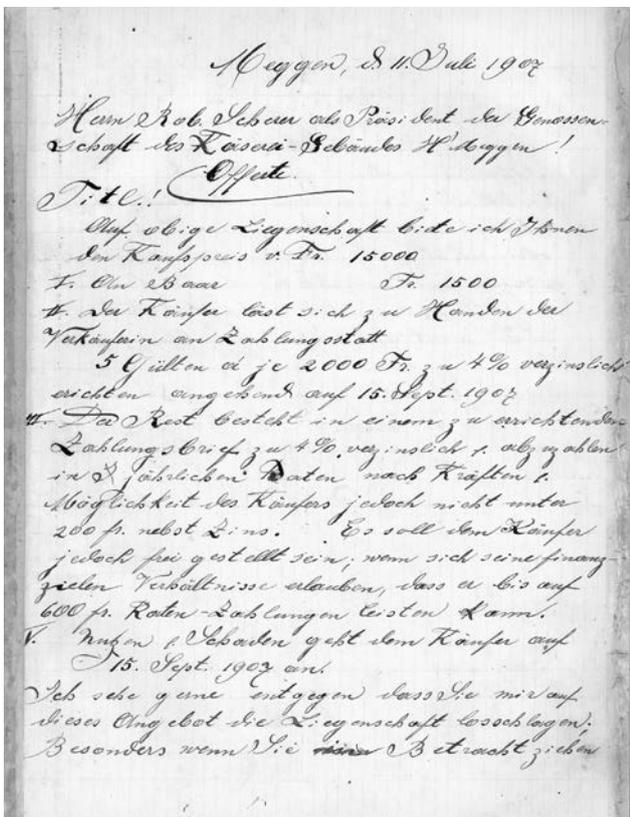 Meggen, d. 11. Juli 1907
Herrn Rob. Scherer als Präsident der Genossen-
schaft des Käserei-Gebäudes H'Meggen!
Offerte.
Titl.!
Auf obige Liegenschaft biete ich Ihnen
den Kaufspreis v. Fr. 15000
I. An Baar Fr. 1500
II. Der Käufer läst sich zu Handen der
Verkäuferin an Zahlungsstatt
5 Gülten à je 2000 Fr. zu 4% verzinslich
erichten angehend auf 15. Sept. 1907
III. Der Rest besteht in einem zu errichtenden
Zahlungsbrief zu 4%, verzinslich & abzuzahlen
in jährlichen Raten nach Kräften &
Möglichkeit des Käufers jedoch nicht unter
200 fr. nebst Zins. Es soll dem Käufer
jedoch frei gestellt sein, wenn sich seine finanz-
zielen Verhältnisse erlauben, dass er bis auf
600 fr. Raten-Zahlungen leisten kann.
V. Nutzen & Schaden geht dem Käufer auf
15. Sept. 1907 an.
Ich sehe gerne entgegen dass Sie mir auf
dieses Angebot die Liegenschaft losschlagen,
Besonders wenn Sie Betracht ziehen